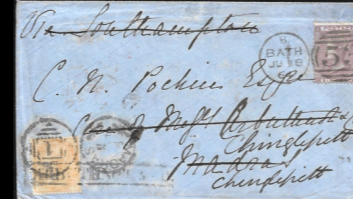 Via Southampton
BATH
JU 18
53
C. N. Pochin Esqre
Care of Messrs Arbuthnot & Co
Chinglepett
Madras
Chinglepett